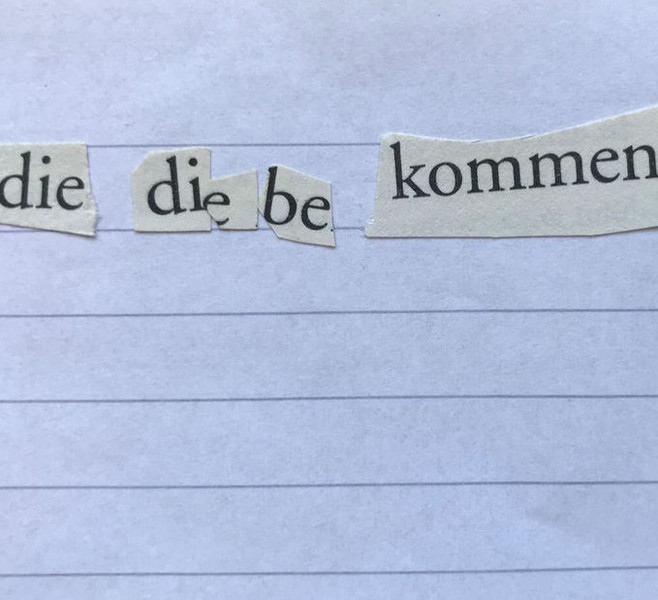 die diebe kommen